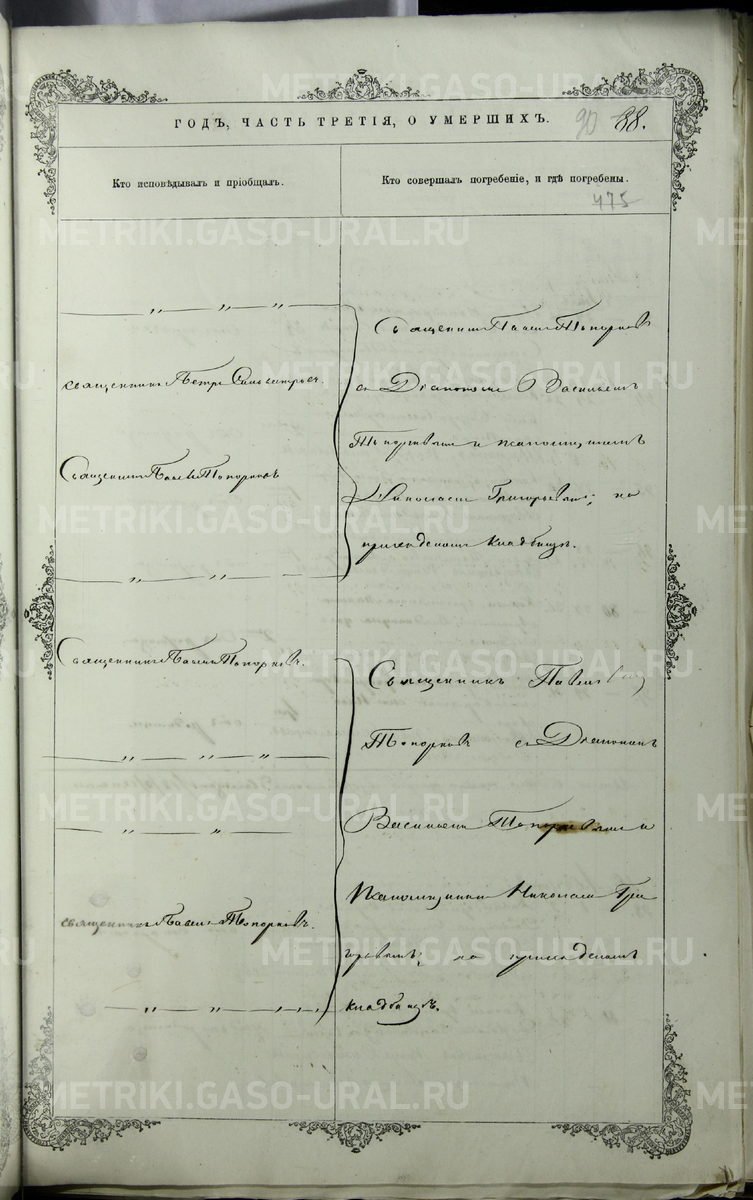 METRIKI.GASO-URAL.RU
ГОДЪ, ЧАСТЬ ТРЕТІЯ, О УМЕРШИХЪ.
90 88.
Кто исповѣдывалъ и пріобщалъ.
Кто совершалъ погребеніе, и гдѣ погребены.
475
— „ — „ — „
священникъ Петръ
Священникъ Павелъ Топорковъ
— „ — „ —
Священникъ Павелъ Топорковъ
съ Діакономъ Василіемъ
Топорковымъ и
Николаемъ Григорьевымъ; на
приходскомъ кладбищѣ.
Священникъ Павелъ Топорковъ.
— „ — „ — „ —
— „ — „ —
священникъ Павелъ Топорковъ.
— „ — „ — „
Священникъ Павелъ
Топорковъ съ Діакономъ
Василіемъ Топорковымъ и
Николаемъ Гри
горьевымъ, на приходскомъ
кладбищѣ.